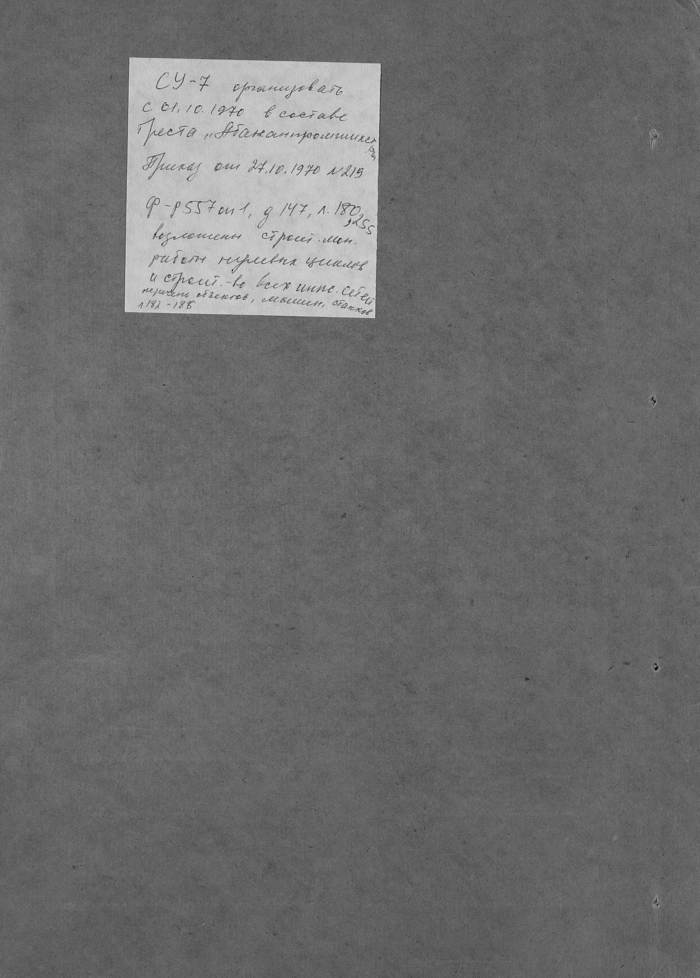 СУ-7 организовать
с 01.10.1970 в составе
треста „Абаканпромжилстрой
Приказ от 27.10.1970 № 219
Ф-р 557 оп 1, д 147, л. 180, 255
возложены строит. мон.
работы нулевых циклов
и строит-во всех инж. сетей
перечень объектов, машин, станков
л 182-188